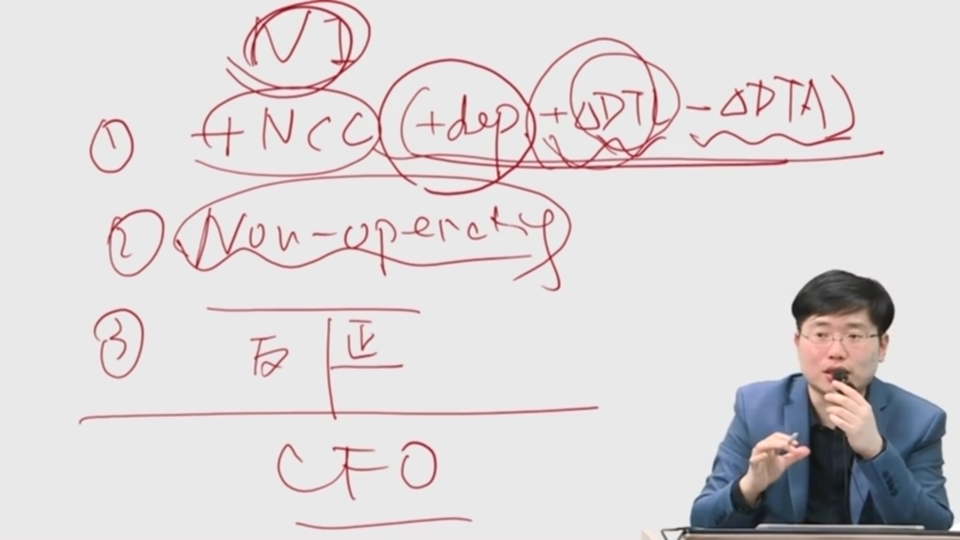 NI
① +NCC (+dep +ΔDTL -ΔDTA)
② Non-operating
③ 反 正
CFO